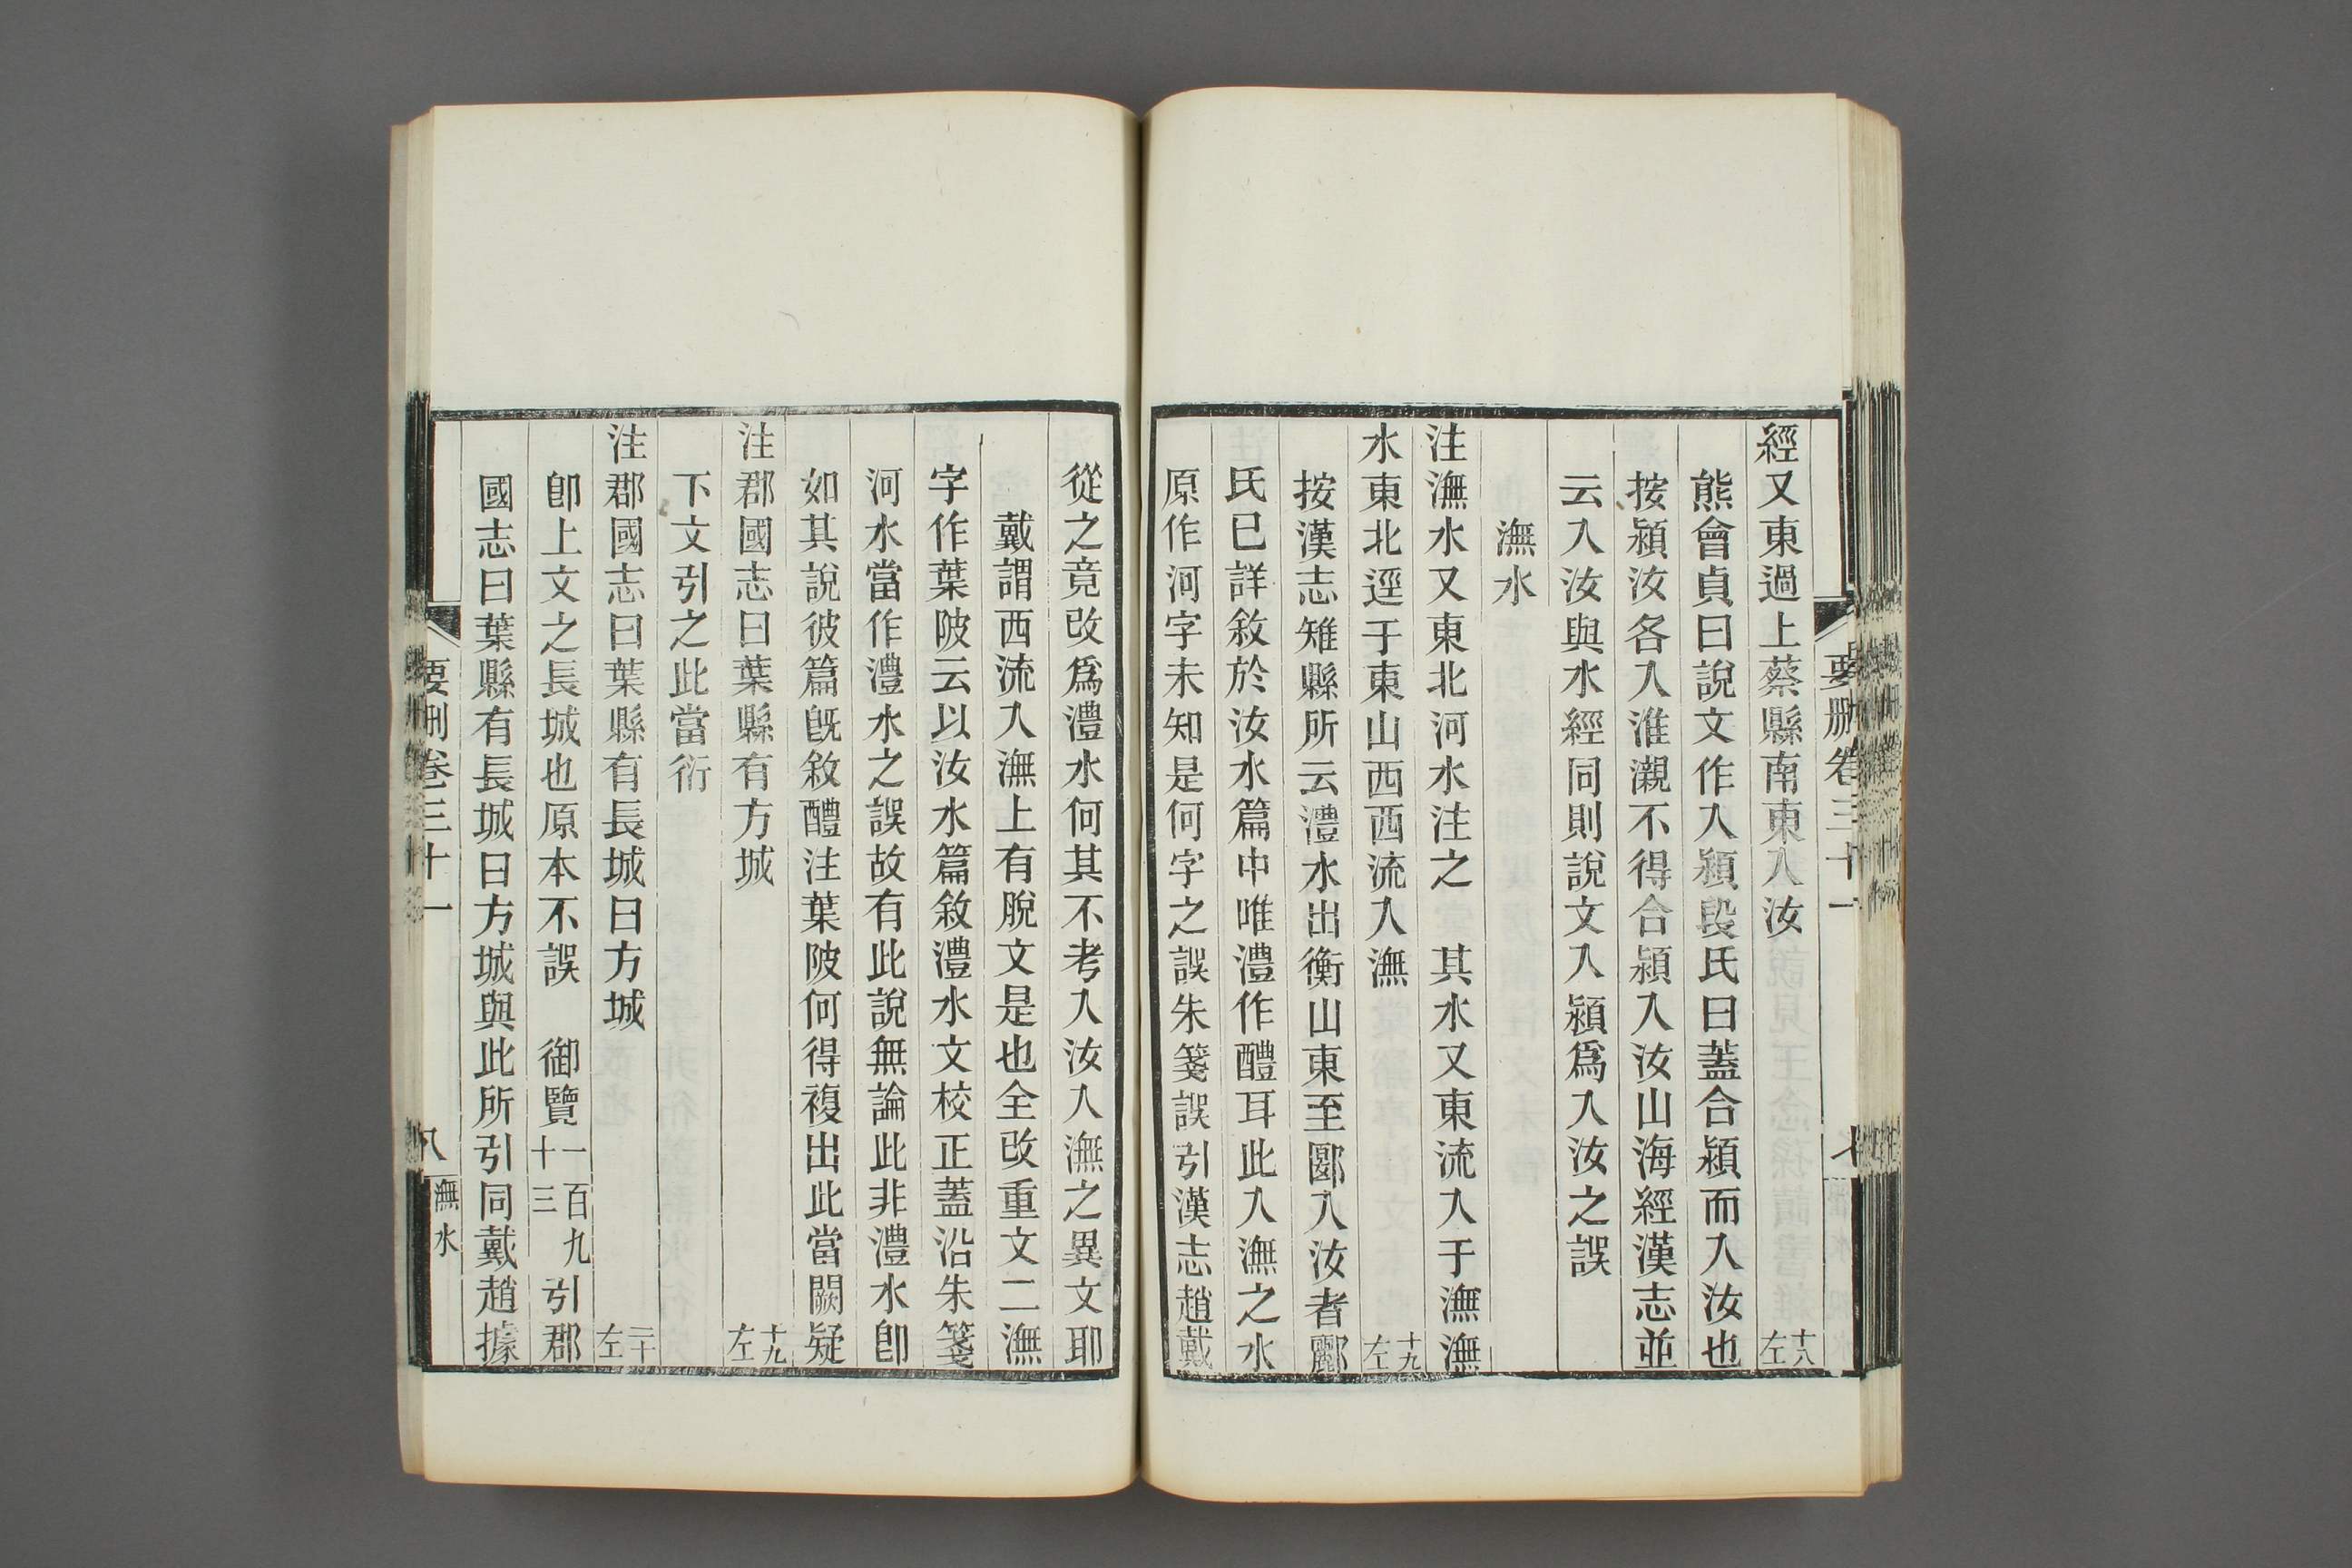 經又東過上蔡縣南東入汝 十八左
熊會貞曰說文作入潁段氏曰蓋合潁而入汝也
按潁汝各入淮瀙不得合潁入汝山海經漢志並
云入汝與水經同則說文入潁爲入汝之誤
潕水
注潕水又東北河水注之 其水又東流入于潕潕
水東北逕于東山西西流入潕 十九左
按漢志雉縣所云澧水出衡山東至郾入汝者酈
氏已詳敘於汝水篇中唯澧作醴耳此入潕之水
原作河字未知是何字之誤朱箋誤引漢志趙戴
從之竟改爲澧水何其不考入汝入潕之異文耶
戴謂西流入潕上有脫文是也全改重文二潕
字作葉陂云以汝水篇敘澧水文校正蓋沿朱箋
河水當作澧水之誤故有此說無論此非澧水卽
如其說彼篇旣敘醴注葉陂何得複出此當闕疑
注郡國志曰葉縣有方城 十九左
下文引之此當衍
注郡國志曰葉縣有長城曰方城 二十左
卽上文之長城也原本不誤 御覽一百九十三引郡
國志曰葉縣有長城曰方城與此所引同戴趙據
要刪卷三十一
八
潕水